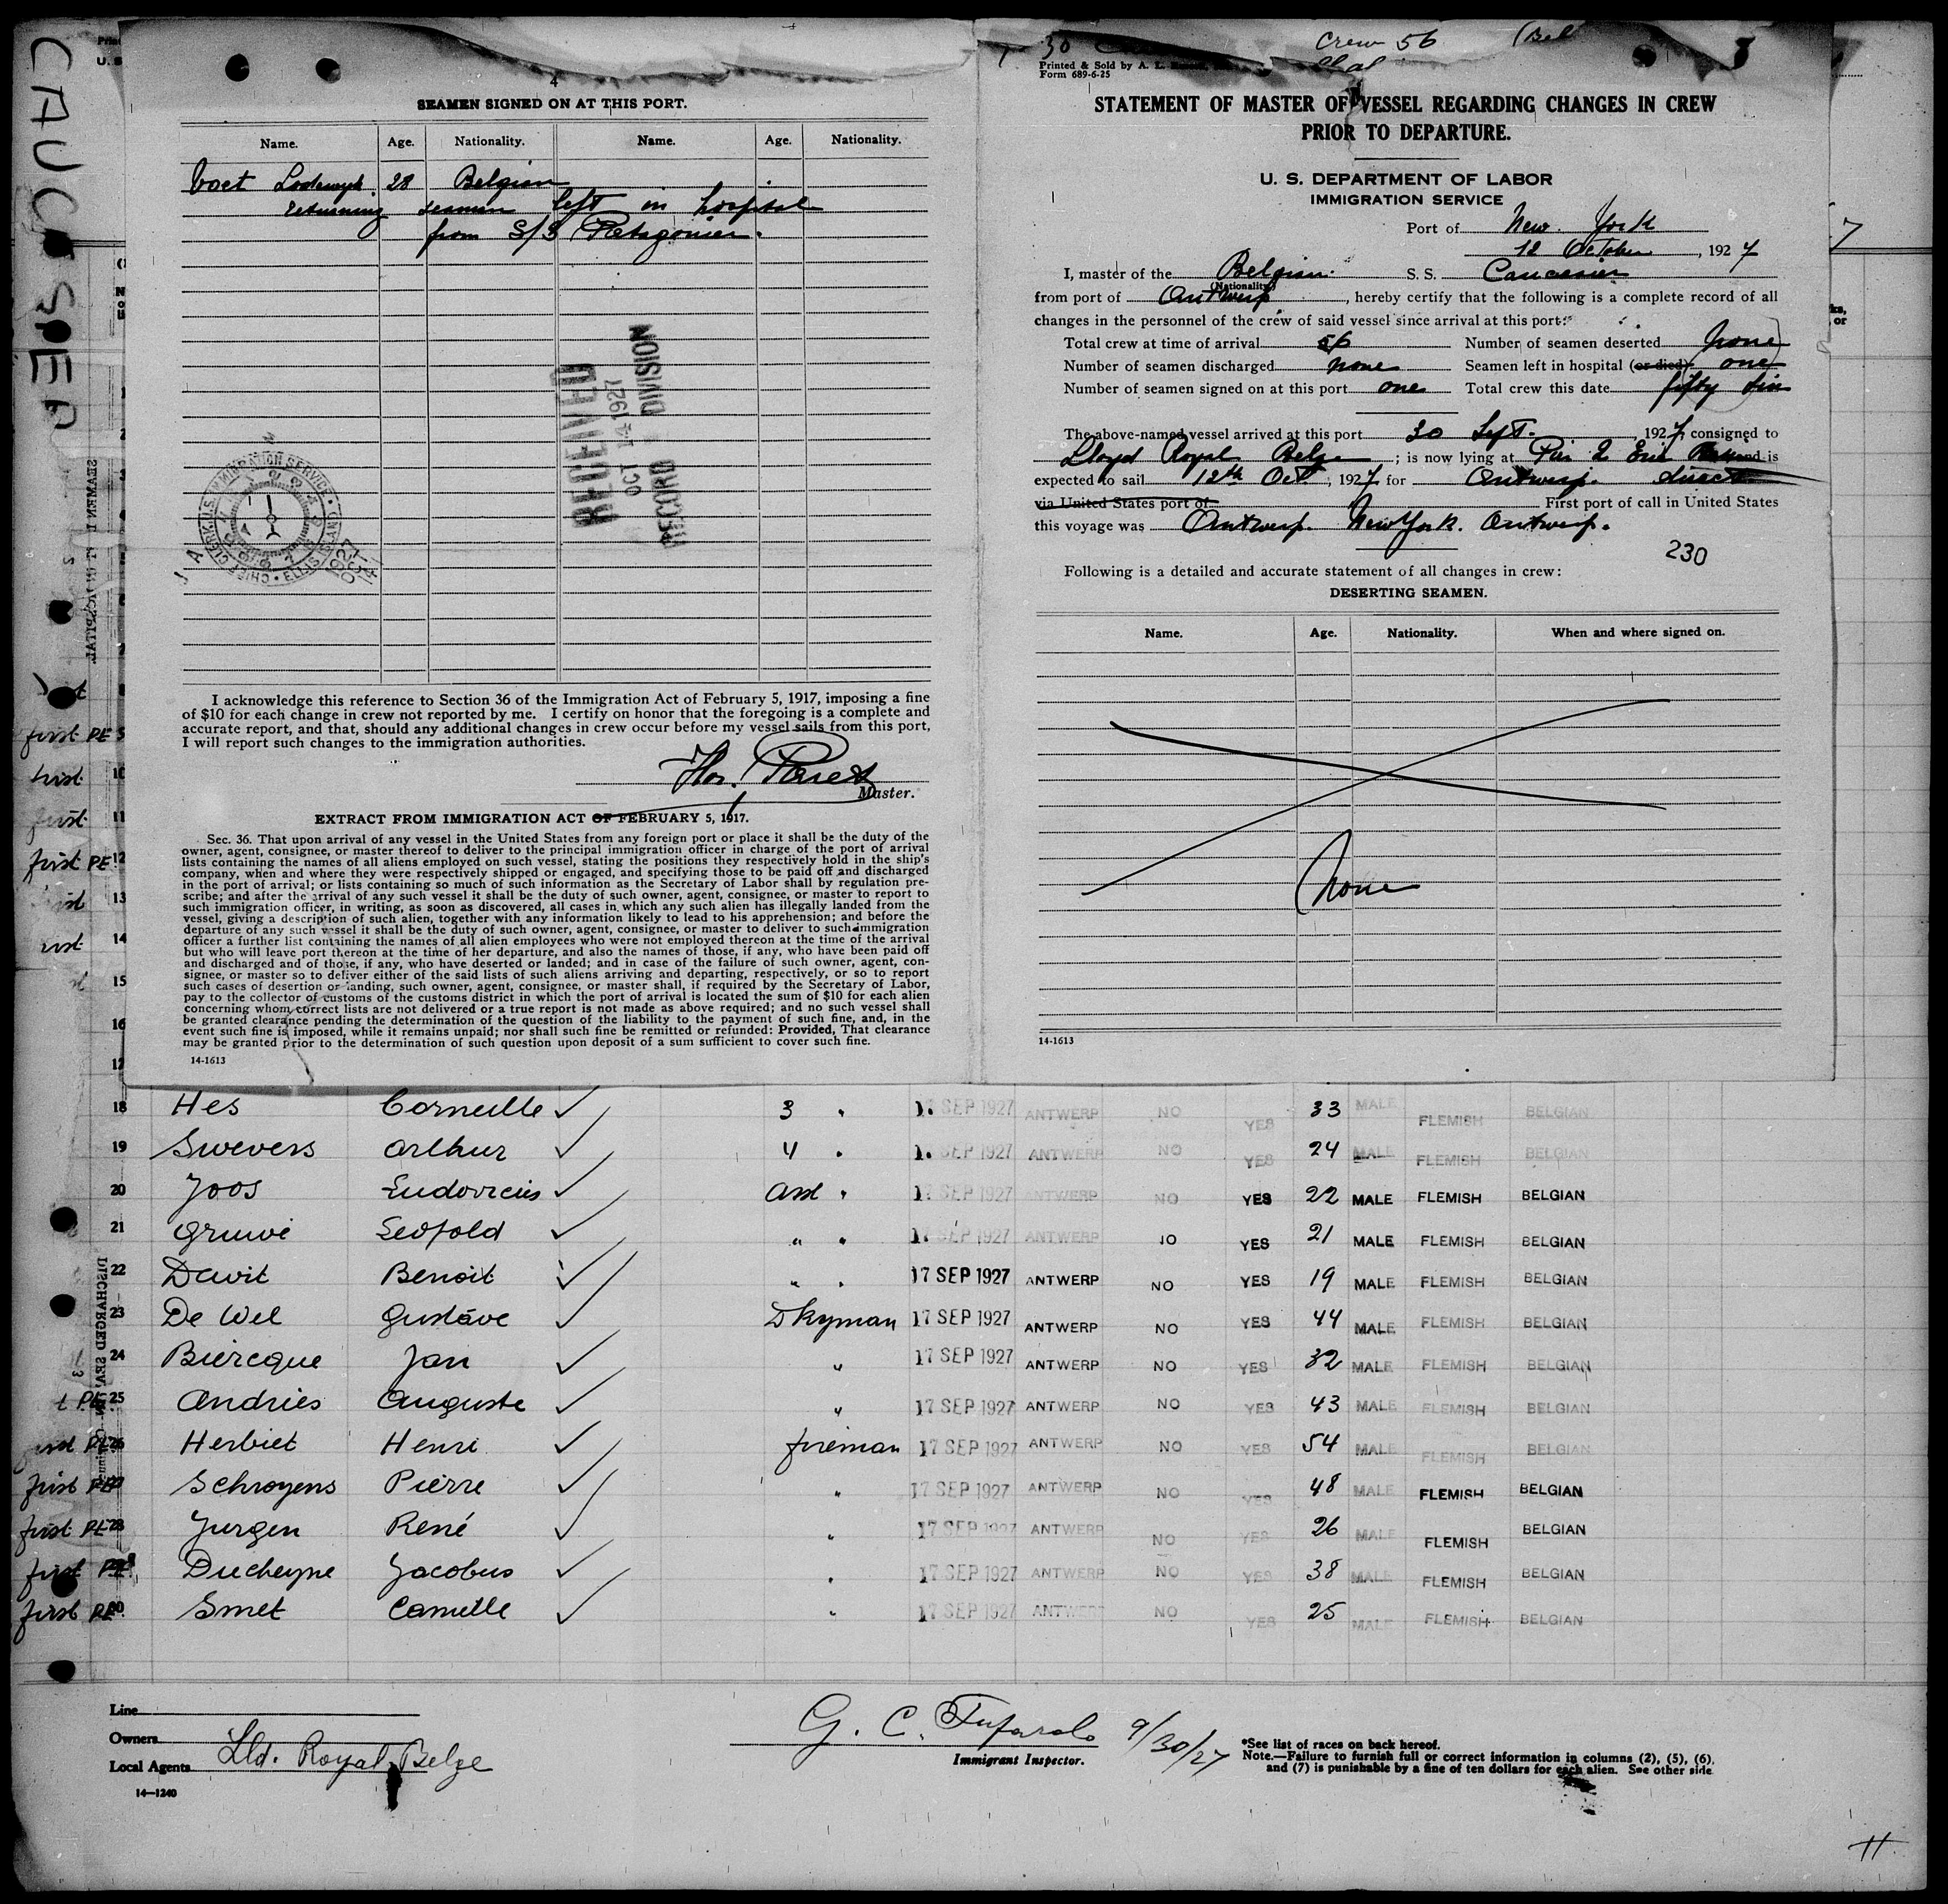 CAUC SPED
4
SEAMEN SIGNED ON AT THIS PORT.
Name. Age. Nationality. Name. Age. Nationality.
Voet Lodewyk 28 Belgian
returning seaman left in hospital
from S/S Patagonier.
RECEIVED
OCT 14 1927
RECORD DIVISION
CHIEF CLERK, U.S. IMMIGRATION SERVICE • ELLIS ISLAND
I acknowledge this reference to Section 36 of the Immigration Act of February 5, 1917, imposing a fine
of $10 for each change in crew not reported by me. I certify on honor that the foregoing is a complete and
accurate report, and that, should any additional changes in crew occur before my vessel sails from this port,
I will report such changes to the immigration authorities.
Master.
EXTRACT FROM IMMIGRATION ACT OF FEBRUARY 5, 1917.
Sec. 36. That upon arrival of any vessel in the United States from any foreign port or place it shall be the duty of the
owner, agent, consignee, or master thereof to deliver to the principal immigration officer in charge of the port of arrival
lists containing the names of all aliens employed on such vessel, stating the positions they respectively hold in the ship's
company, when and where they were respectively shipped or engaged, and specifying those to be paid off and discharged
in the port of arrival; or lists containing so much of such information as the Secretary of Labor shall by regulation pre-
scribe; and after the arrival of any such vessel it shall be the duty of such owner, agent, consignee, or master to report to
such immigration officer, in writing, as soon as discovered, all cases in which any such alien has illegally landed from the
vessel, giving a description of such alien, together with any information likely to lead to his apprehension; and before the
departure of any such vessel it shall be the duty of such owner, agent, consignee, or master to deliver to such immigration
officer a further list containing the names of all alien employees who were not employed thereon at the time of the arrival
but who will leave port thereon at the time of her departure, and also the names of those, if any, who have been paid off
and discharged and of those, if any, who have deserted or landed; and in case of the failure of such owner, agent, con-
signee, or master so to deliver either of the said lists of such aliens arriving and departing, respectively, or so to report
such cases of desertion or landing, such owner, agent, consignee, or master shall, if required by the Secretary of Labor,
pay to the collector of customs of the customs district in which the port of arrival is located the sum of $10 for each alien
concerning whom correct lists are not delivered or a true report is not made as above required; and no such vessel shall
be granted clearance pending the determination of the question of the liability to the payment of such fine, and, in the
event such fine is imposed, while it remains unpaid; nor shall such fine be remitted or refunded: Provided, That clearance
may be granted prior to the determination of such question upon deposit of a sum sufficient to cover such fine.
14-1613
30 Crew 56 (Bel 3
Printed & Sold by A. E.
Form 689-6-25
STATEMENT OF MASTER OF VESSEL REGARDING CHANGES IN CREW
PRIOR TO DEPARTURE.
U. S. DEPARTMENT OF LABOR
IMMIGRATION SERVICE
Port of New York
12 October, 1927
I, master of the Belgian S. S. Caucasier
(Nationality)
from port of Antwerp, hereby certify that the following is a complete record of all
changes in the personnel of the crew of said vessel since arrival at this port:
Total crew at time of arrival 56 Number of seamen deserted none
Number of seamen discharged none Seamen left in hospital (or died) one
Number of seamen signed on at this port one Total crew this date fifty six
The above-named vessel arrived at this port 30 Sept. 1927, consigned to
Lloyd Royal Belge; is now lying at Pier 2 Erie and is
expected to sail 12th Oct, 1927 for Antwerp. direct
via United States port of First port of call in United States
this voyage was Antwerp. New York. Antwerp.
230
Following is a detailed and accurate statement of all changes in crew:
DESERTING SEAMEN.
Name. Age. Nationality. When and where signed on.
none
14-1613
18 Hes Corneille 3 " 17 SEP 1927 ANTWERP NO YES 33 MALE FLEMISH BELGIAN
19 Swevers Arthur 4 " 17 SEP 1927 ANTWERP NO YES 24 MALE FLEMISH BELGIAN
20 Joos Ludovicus Asst " 17 SEP 1927 ANTWERP NO YES 22 MALE FLEMISH BELGIAN
21 Gruwé Leopold " " 17 SEP 1927 ANTWERP NO YES 21 MALE FLEMISH BELGIAN
22 Davit Benoit " " 17 SEP 1927 ANTWERP NO YES 19 MALE FLEMISH BELGIAN
23 De Wel Gustave Dkyman 17 SEP 1927 ANTWERP NO YES 44 MALE FLEMISH BELGIAN
24 Biercque Jan " 17 SEP 1927 ANTWERP NO YES 32 MALE FLEMISH BELGIAN
25 Andries Auguste " 17 SEP 1927 ANTWERP NO YES 43 MALE FLEMISH BELGIAN
26 Herbiet Henri fireman 17 SEP 1927 ANTWERP NO YES 54 MALE FLEMISH BELGIAN
first PE 27 Schroyens Pierre " 17 SEP 1927 ANTWERP NO YES 48 MALE FLEMISH BELGIAN
first PE 28 Jurgen René " 17 SEP 1927 ANTWERP NO YES 26 MALE FLEMISH BELGIAN
first PE 29 Ducheyne Jacobus " 17 SEP 1927 ANTWERP NO YES 38 MALE FLEMISH BELGIAN
first PE 30 Smet Camille " 17 SEP 1927 ANTWERP NO YES 25 MALE FLEMISH BELGIAN
Line
Owners
Local Agents Lld. Royal Belge
14—1240
G. C. Tufarolo 9/30/27
Immigrant Inspector.
*See list of races on back hereof.
Note.—Failure to furnish full or correct information in columns (2), (5), (6),
and (7) is punishable by a fine of ten dollars for each alien. See other side
11